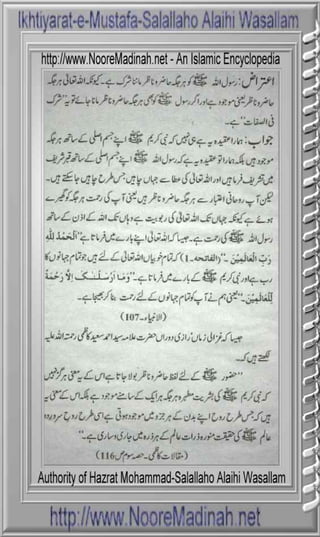 Ikhtiyarat-e-Mustafa-Salallaho Alaihi Wasallam
http://www.NooreMadinah.net - An Islamic Encyclopedia
اعتراض: رسول اللہ ﷺ کو ہر جگہ حاضر و ناظر ماننا شرک ہے۔ کیونکہ اللہ تعالیٰ ہر جگہ
حاضر و ناظر یعنی موجود ہے اور اگر رسول ﷺ کو بھی ہر جگہ حاضر و ناظر مانا جائے تو یہ "شرک
فی الصفات" ہے۔
جواب: ہمارا تو عقیدہ یہ ہے ہی نہیں کہ نبی کریم ﷺ اپنے جسم اصلی کے ساتھ ہر جگہ
موجود ہیں بلکہ ہمارا تو عقیدہ یہ ہے کہ رسول اللہ ﷺ اپنے جسم اصلی کے ساتھ قبر شریف
میں تشریف فرما ہیں اور اللہ تعالیٰ کی عطا سے جہاں چاہیں جس طرح چاہیں جا سکتے ہیں۔
لیکن آپ روحانی اعتبار سے ہر جگہ حاضر و ناظر ہیں یعنی آپ کی رحمت ہر جگہ کو گھیرے
ہوئے ہے کیونکہ جہاں تک اللہ تعالیٰ کی ربوبیت ہے وہاں تک اللہ کے اذن کے ساتھ
رسول اللہ ﷺ کی رحمت ہے۔ جیسا کہ اللہ تعالیٰ اپنے بارے میں فرماتا ہے "اَلْحَمْدُ لِلّٰہِ
رَبِّ الْعَالَمِیْنَ۔" (الفاتحہ۔1) کہ تمام خوبیاں اللہ تعالیٰ کے لئے ہیں جو تمام جہانوں کا
رب ہے اور نبی کریم ﷺ کے بارے میں فرماتا ہے۔ "وَمَا اَرْسَلْنٰکَ اِلَّا رَحْمَةً
لِّلْعَالَمِیْنَ۔" یعنی ہم نے آپ کو تمام جہانوں کے لئے رحمت بنا کر بھیجا ہے۔
(الانبیاء۔107)
جیسا کہ غزالی زماں رازی دوراں حضرت علامہ سید احمد سعید کاظمی رحمۃ اللہ علیہ
لکھتے ہیں کہ۔
"حضور ﷺ کے لئے لفظ حاضر و ناظر بولا جاتا ہے اس کے یہ معنی ہرگز نہیں
کہ نبی کریم ﷺ کی بشریت مطہرہ ہر جگہ ہر ایک کے سامنے موجود ہے بلکہ اس کے معنی یہ
ہیں کہ جس طرح روح اپنے بدن کے ہر جزو میں موجود ہوتی ہے اسی طرح روح سرور دو
عالم ﷺ کی حقیقت منورہ ذرات عالم کے ہر ذرہ میں جاری و ساری ہے۔"
(مقالات کاظمی۔ حصہ سوم ص 116)
Authority of Hazrat Mohammad-Salallaho Alaihi Wasallam
http://www.NooreMadinah.net